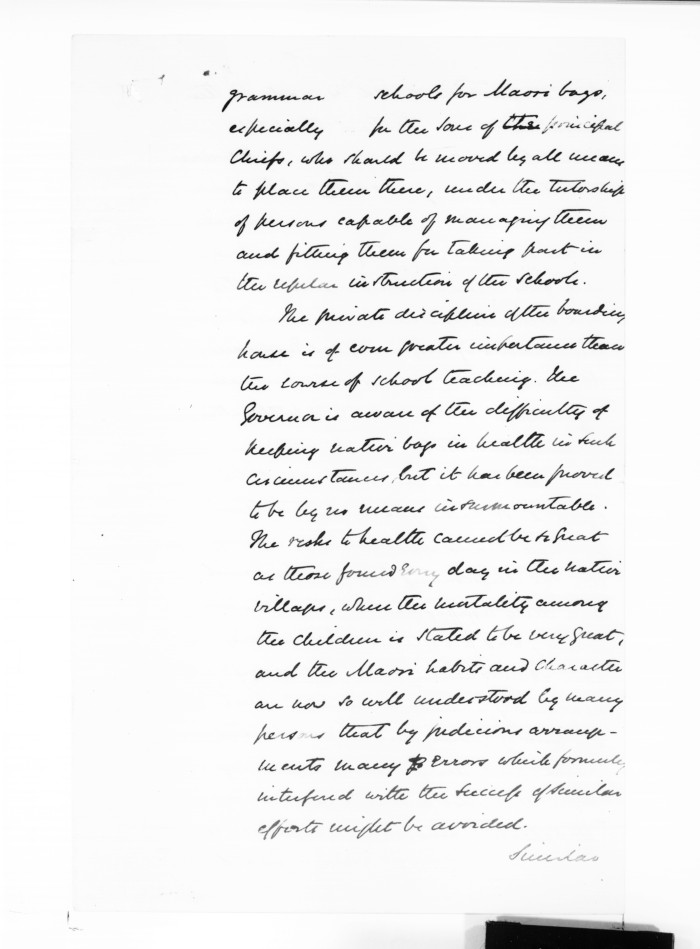 grammar schools for Maori boys,
especially for the sons of the principal
Chiefs, who should be moved by all means
to place them there, under the tutorship
of persons capable of managing them
and fitting them for taking part in
the regular instruction of the schools.
The private discipline of the boarding
house is of even greater importance than
the course of school teaching. The
Governor is aware of the difficulty of
keeping native boys in health in such
circumstances, but it has been proved
to be by no means insurmountable.
The risks to health cannot be so great
as those found every day in the native
villages, where the mortality among
the children is stated to be very great,
and the Maori habits and character
are now so well understood by many
persons that by judicious arrange-
ments many errors which formerly
interfered with the success of similar
efforts might be avoided.
Similar